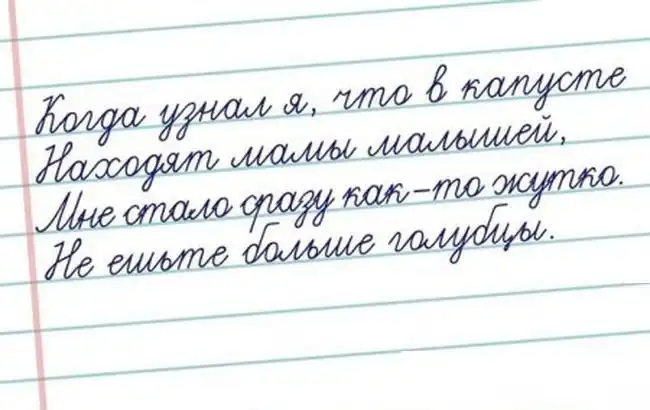 Когда узнал я, что в капусте
Находят мамы малышей,
Мне стало сразу как-то жутко.
Не ешьте больше голубцы.